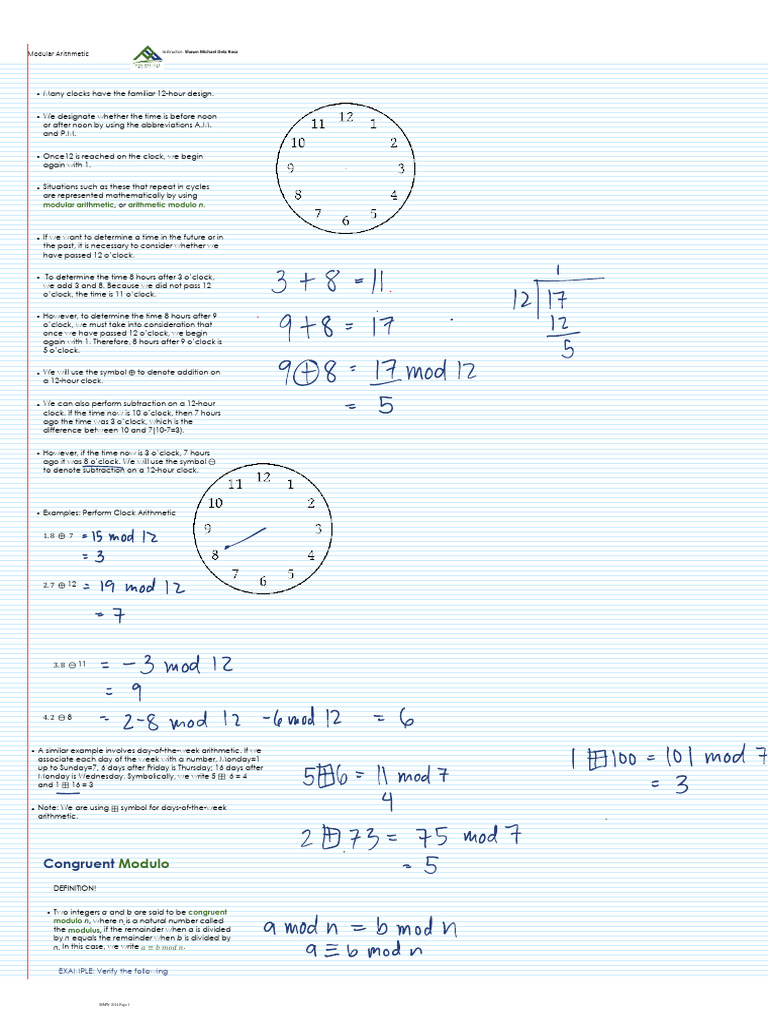 Modular Arithmetic
Instructor: Shawn Michael Dela Rosa
• Many clocks have the familiar 12-hour design.
• We designate whether the time is before noon
or after noon by using the abbreviations A.M.
and P.M.
• Once12 is reached on the clock, we begin
again with 1.
• Situations such as these that repeat in cycles
are represented mathematically by using
modular arithmetic, or arithmetic modulo n.
12
11 1
10 2
9 3
8 4
7 5
6
• If we want to determine a time in the future or in
the past, it is necessary to consider whether we
have passed 12 o'clock.
• To determine the time 8 hours after 3 o'clock,
we add 3 and 8. Because we did not pass 12
o'clock, the time is 11 o'clock.
3 + 8 = 11.
• However, to determine the time 8 hours after 9
o'clock, we must take into consideration that
once we have passed 12 o'clock, we begin
again with 1. Therefore, 8 hours after 9 o'clock is
5 o'clock.
9 + 8 = 17
1
12 17
12
5
• We will use the symbol ⊕ to denote addition on
a 12-hour clock.
9 ⊕ 8 = 17 mod 12
= 5
• We can also perform subtraction on a 12-hour
clock. If the time now is 10 o'clock, then 7 hours
ago the time was 3 o'clock, which is the
difference between 10 and 7(10-7=3).
• However, if the time now is 3 o'clock, 7 hours
ago it was 8 o'clock. We will use the symbol ⊖
to denote subtraction on a 12-hour clock.
12
11 1
10 2
9 3
8 4
7 5
6
• Examples: Perform Clock Arithmetic
1.8 ⊕ 7 = 15 mod 12
= 3
2.7 ⊕ 12 = 19 mod 12
= 7
3.8 ⊖ 11 = -3 mod 12
= 9
4.2 ⊖ 8 = 2-8 mod 12 -6 mod 12 = 6
• A similar example involves day-of-the-week arithmetic. If we
associate each day of the week with a number, Monday=1
up to Sunday=7, 6 days after Friday is Thursday; 16 days after
Monday is Wednesday. Symbolically, we write 5 ⊞ 6 = 4
and 1 ⊞ 16 = 3
5 ⊞ 6 = 11 mod 7
4
1 ⊞ 100 = 101 mod 7
= 3
• Note: We are using ⊞ symbol for days-of-the-week
arithmetic.
2 ⊞ 73 = 75 mod 7
= 5
Congruent Modulo
DEFINITION!
• Two integers a and b are said to be congruent
modulo n, where n is a natural number called
the modulus, if the remainder when a is divided
by n equals the remainder when b is divided by
n. In this case, we write a ≡ b mod n.
a mod n = b mod n
a ≡ b mod n
EXAMPLE: Verify the following